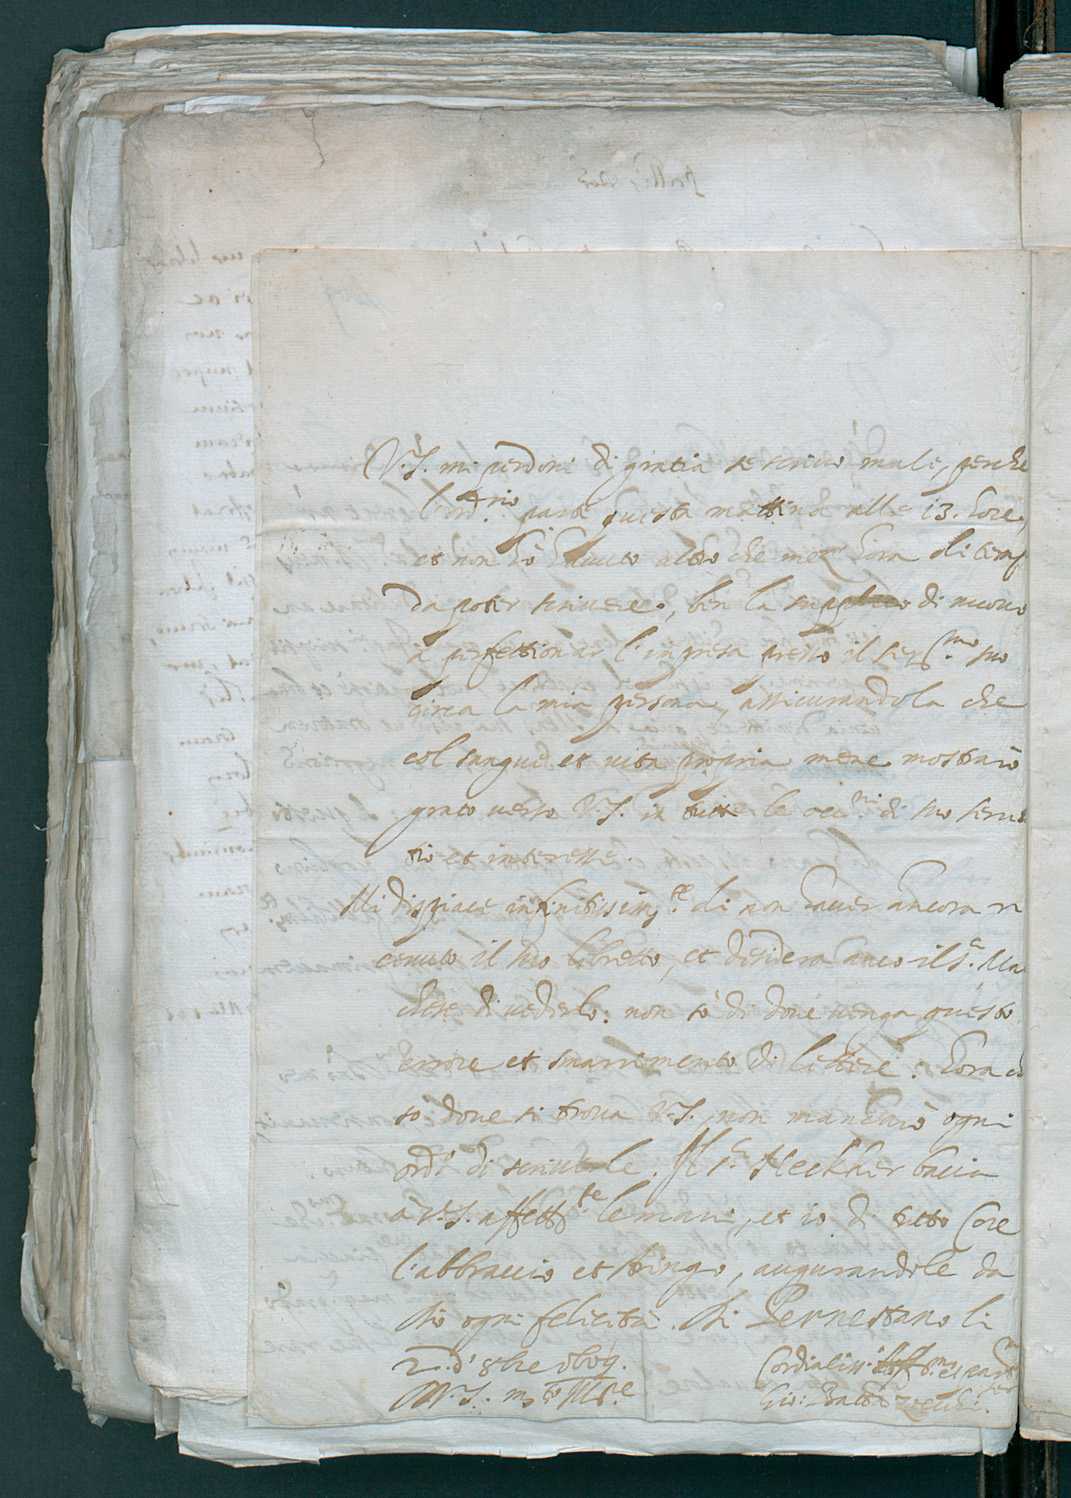 V.S. mi perdoni di gratia se scrivo male, perche
l'ord.rio parte questa mattina alle 13. hore,
et non hò havuto altro che mez' hora di temp
da poter scrivere, ben la supplico di nuovo
à perfettionar l'impresa presso il Ser.mo suo
circa la mia persona, assicurandola che
col sangue et vita propria mene mostrarò
grato verso V.S. in tutte le occ.ni di suo servi
tio et interesse.
Mi dispiace infinitissim.te di non haver ancora ri
cevuto il suo libretto, et desidera anco il S.r Ma
chese di vederlo: non sò di dove venga questo
errore et smarrimento di lettere: hora ch
so dove si trova V.S. non mancarò ogni
ord.o di scriverle. Il S.r Heckher bacia
à V.S. affett.te le mani, et io di tutto Core
l'abbraccio et stringo, augurandole da
Dio ogni felicità. Di Pernestano li
2. d' 8bre
D V.S. m.to Ill.re
Cordialiss.o
Gio: Batta